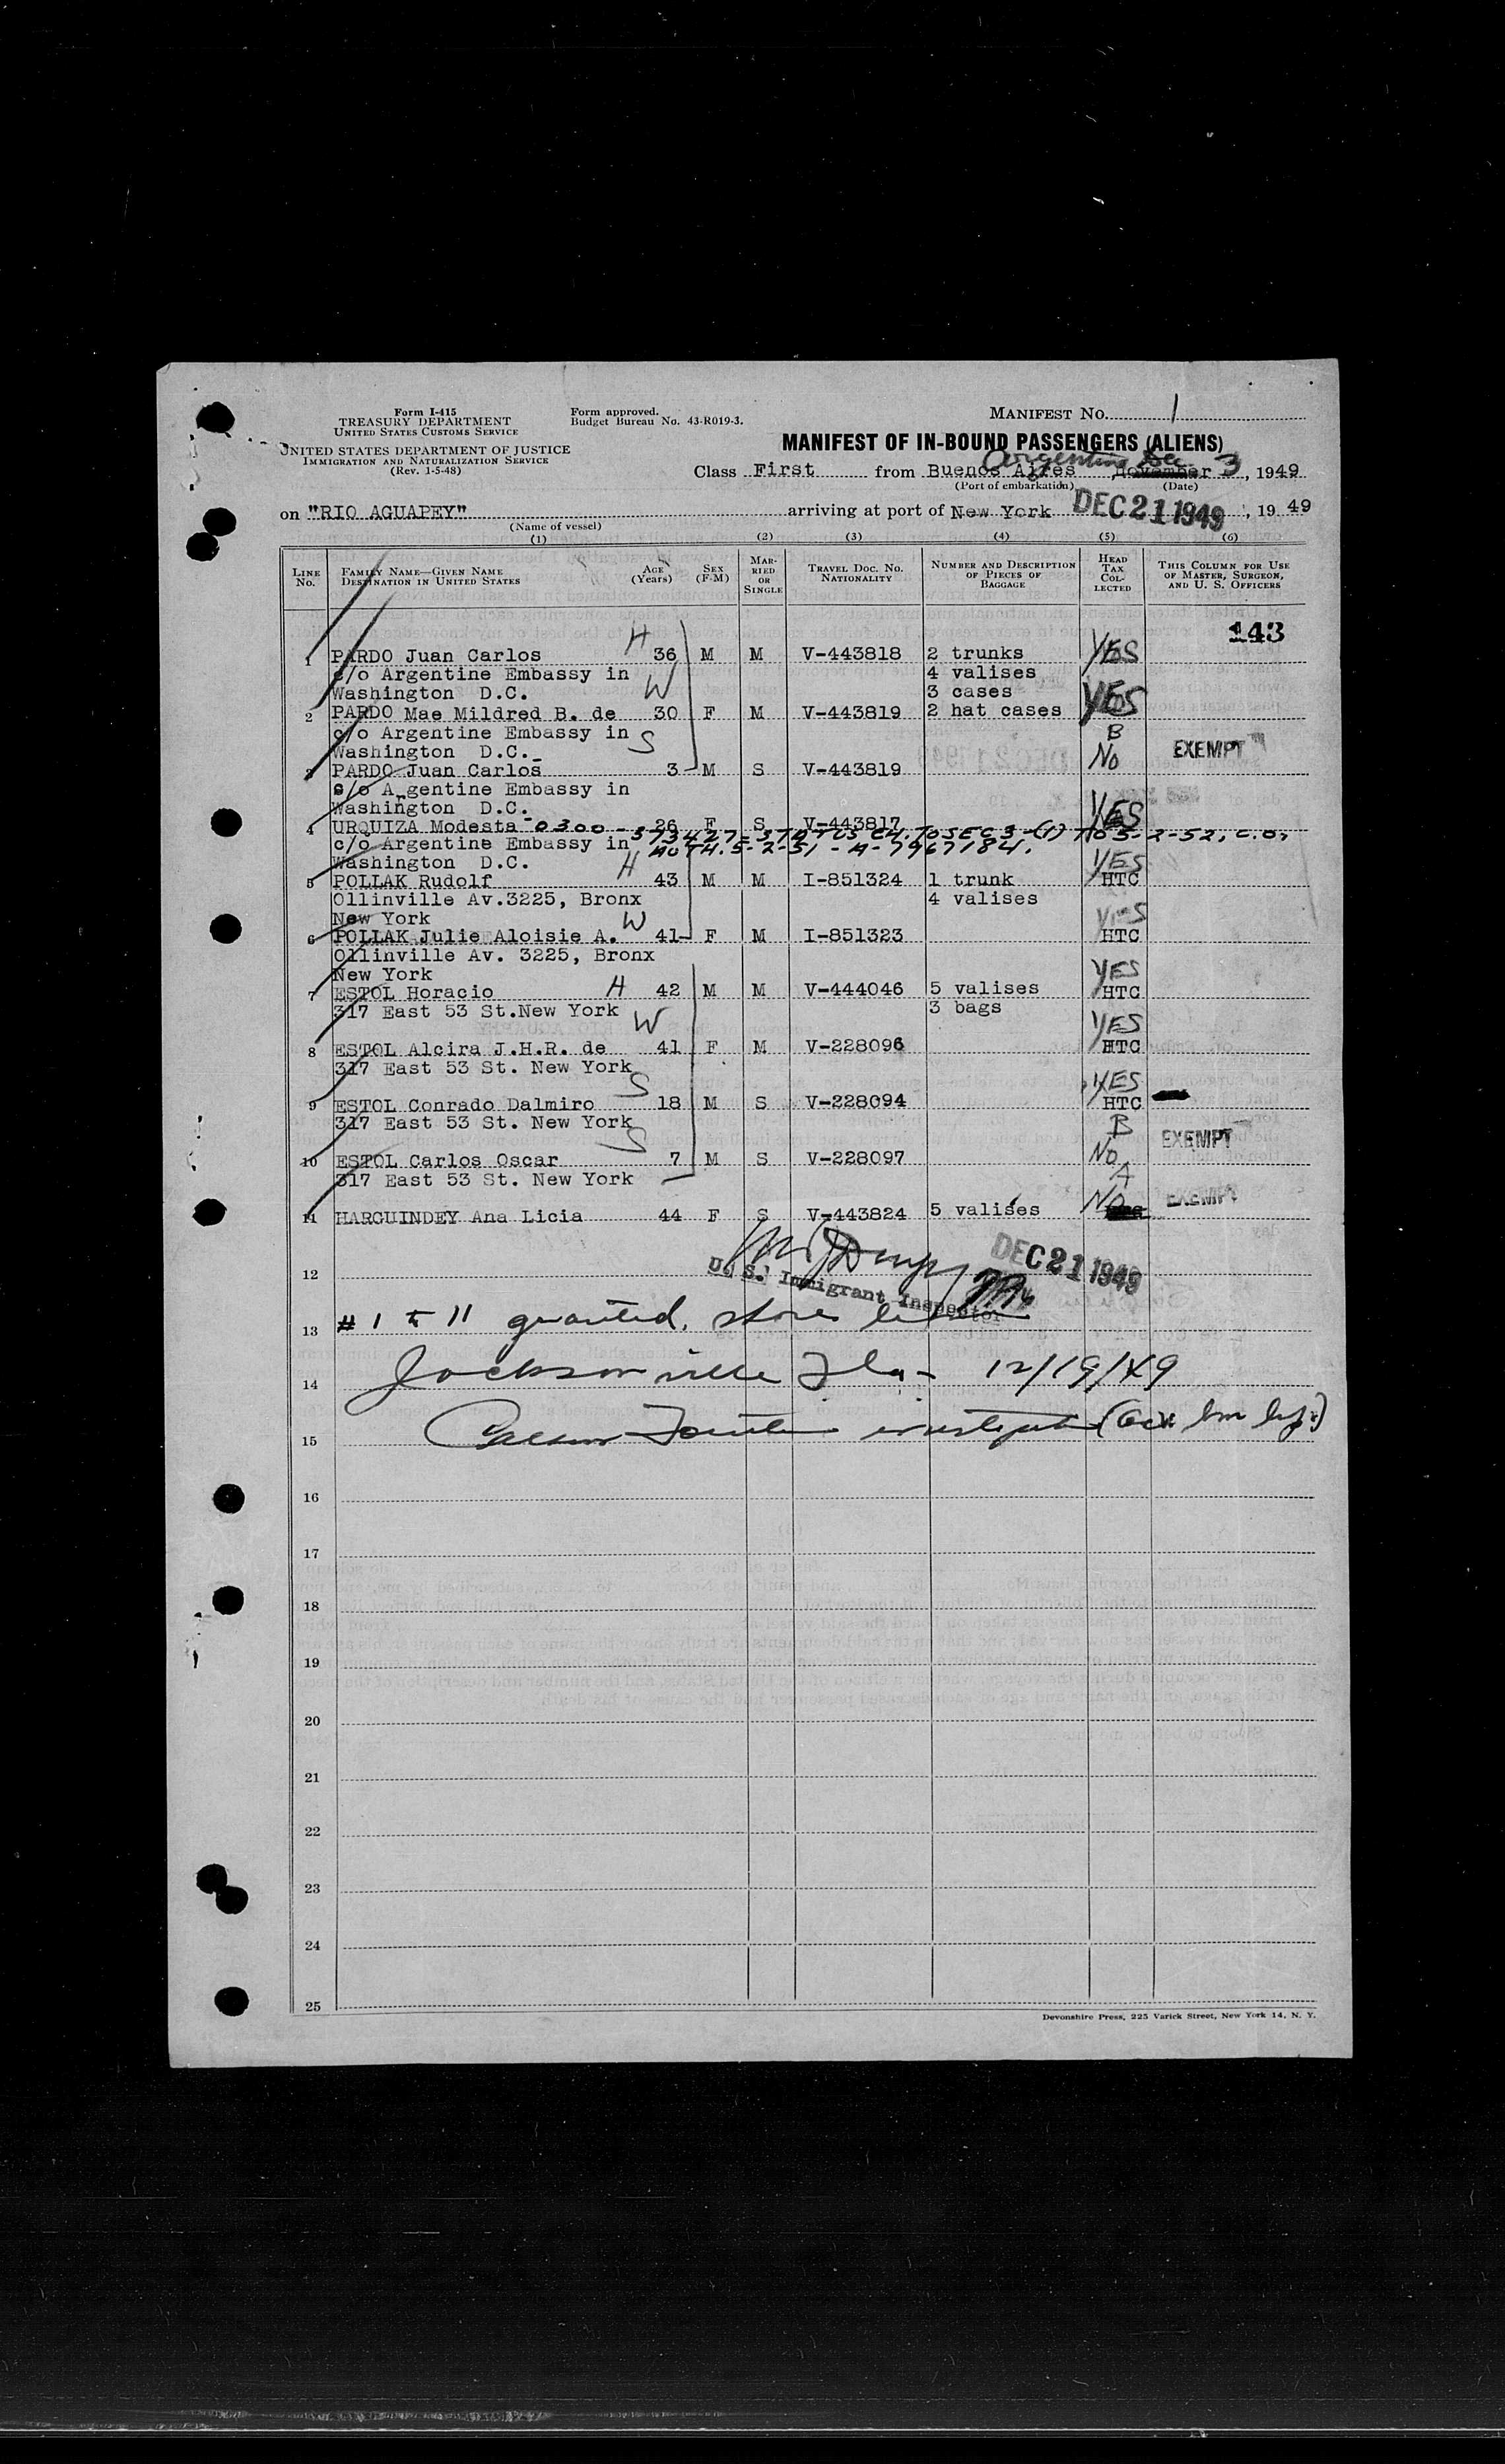 Form I-415
TREASURY DEPARTMENT
UNITED STATES CUSTOMS SERVICE
UNITED STATES DEPARTMENT OF JUSTICE
IMMIGRATION AND NATURALIZATION SERVICE
(Rev. 1-5-48)
Form approved.
Budget Bureau No. 43-R019-3.
MANIFEST NO. 1
MANIFEST OF IN-BOUND PASSENGERS (ALIENS)
Argentina Dec
Class First from Buenos Aires, November 3, 1949
(Port of embarkation) (Date)
on "RIO AGUAPEY" arriving at port of New York DEC 21 1949, 19 49
(Name of vessel)
(1) (2) (3) (4) (5) (6)
LINE NO. FAMILY NAME—GIVEN NAME DESTINATION IN UNITED STATES AGE (YEARS) SEX (F-M) MARRIED OR SINGLE TRAVEL DOC. NO. NATIONALITY NUMBER AND DESCRIPTION OF PIECES OF BAGGAGE HEAD TAX COLLECTED THIS COLUMN FOR USE OF MASTER, SURGEON, AND U. S. OFFICERS
143
1 PARDO Juan Carlos H 36 M M V-443818 2 trunks YES
c/o Argentine Embassy in 4 valises
Washington D.C. W 3 cases
2 PARDO Mae Mildred B. de 30 F M V-443819 2 hat cases YES
c/o Argentine Embassy in S B
Washington D.C. No EXEMPT
3 PARDO Juan Carlos 3 M S V-443819
c/o Argentine Embassy in
Washington D.C.
4 URQUIZA Modesta 26 F S V-443817 YES
0300-373427-STATUS CH. TO SEC 3-(1) TO 5-2-52, C.O.
c/o Argentine Embassy in AUTH. 5-2-51-A-7967184.
Washington D.C. H YES
5 POLLAK Rudolf 43 M M I-851324 1 trunk HTC
Ollinville Av.3225, Bronx 4 valises
New York W YES
6 POLLAK Julie Aloisie A. 41 F M I-851323 HTC
Ollinville Av. 3225, Bronx
New York YES
7 ESTOL Horacio H 42 M M V-444046 5 valises HTC
317 East 53 St.New York W 3 bags YES
8 ESTOL Alcira J.H.R. de 41 F M V-228096 HTC
317 East 53 St. New York S YES
9 ESTOL Conrado Dalmiro 18 M S V-228094 HTC
317 East 53 St. New York S B EXEMPT
10 ESTOL Carlos Oscar 7 M S V-228097 No
317 East 53 St. New York A
11 HARGUINDEY Ana Licia 44 F S V-443824 5 valises No EXEMPT
12 DEC 21 1949
U. S. Immigrant Inspector
13 # 1 to 11 granted, shore
14 Jacksonville Fla- 12/19/49
15
16
17
18
19
20
21
22
23
24
25
Devonshire Press, 225 Varick Street, New York 14, N. Y.